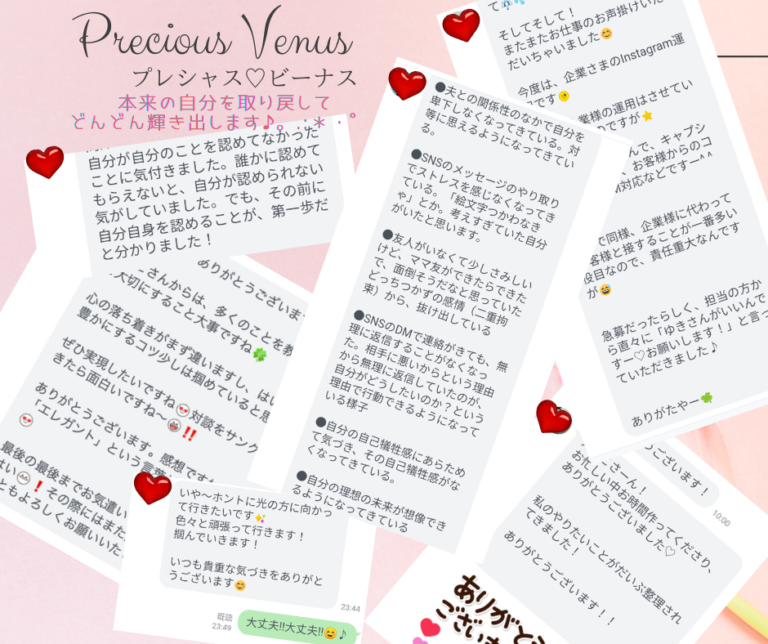 Precious Venus
プレシャス♡ビーナス
本来の自分を取り戻して
どんどん輝き出します♪。.:＊・°
自分が自分のことを認めてなかった
ことに気付きました。誰かに認めて
もらえないと、自分が認められない
気がしていました。でも、その前に
自分自身を認めることが、第一歩だ
と分かりました！
ありがとうございます
さんからは、多くのことを教
大切にすること大事ですね🍀
心の落ち着きがまず違いますし、
豊かにするコツ少しは掴めていると思
きたら面白いですね〜
ぜひ実現したいですね
対談をサング
ありがとうございます。感想です
「エレガント」という言葉
最後の最後までお気遣い
その際にはまた
ともよろしくお願いいた
いや〜ホントに光の方に向かっ
て行きたいです✨
色々と頑張って行きます！
掴んでいきます！
いつも貴重な気づきをありがと
うございます😊
23:44
既読
23:49
大丈夫!!大丈夫!!😄♪
●夫との関係性のなかで自分を
卑下しなくなってきている。対
等に思えるようになってきてい
る。
●SNSのメッセージのやり取り
でストレスを感じなくなってき
ている。「絵文字つかわなき
ゃ」とか。考えすぎていた自分
がいたと思います。
●友人がいなくて少しさみしい
けど、ママ友ができたらできた
で、面倒そうだなと思っていた
どっちつかずの感情（二重拘
束）から、抜け出している
●SNSのDMで連絡がきても、無
理に返信することがなくなっ
た。相手に悪いからという理由
から無理に返信していたのが、
自分がどうしたいのか？という
理由で行動できるようになって
いる様子
●自分の自己犠牲感にあらため
て気づき、その自己犠牲感がな
くなってきている。
●自分の理想の未来が想像でき
るようになってきている
そしてそして！
またまたお仕事のお声掛けいた
だいちゃいました😊
今度は、企業さまのInstagram運
です
業様の運用はさせてい
のですが⭐
んで、キャプシ
、お客様からのコ
M対応などですー^^
で同様、企業様に代わって
客様と接することが一番多い
役目なので、責任重大なんです
が😅
急募だったらしく、担当の方か
ら直々に「ゆきさんがいいんで
すー♡お願いします！」と言っ
ていただきました♪
ありがたやー🍀
うございます！
10:00
さん！
お忙しい中お時間作ってくださり、
ありがとうございました♡
私のやりたいことがだいぶ整理され
てきました！
ありがとうございます！！
ありがとう
ございま